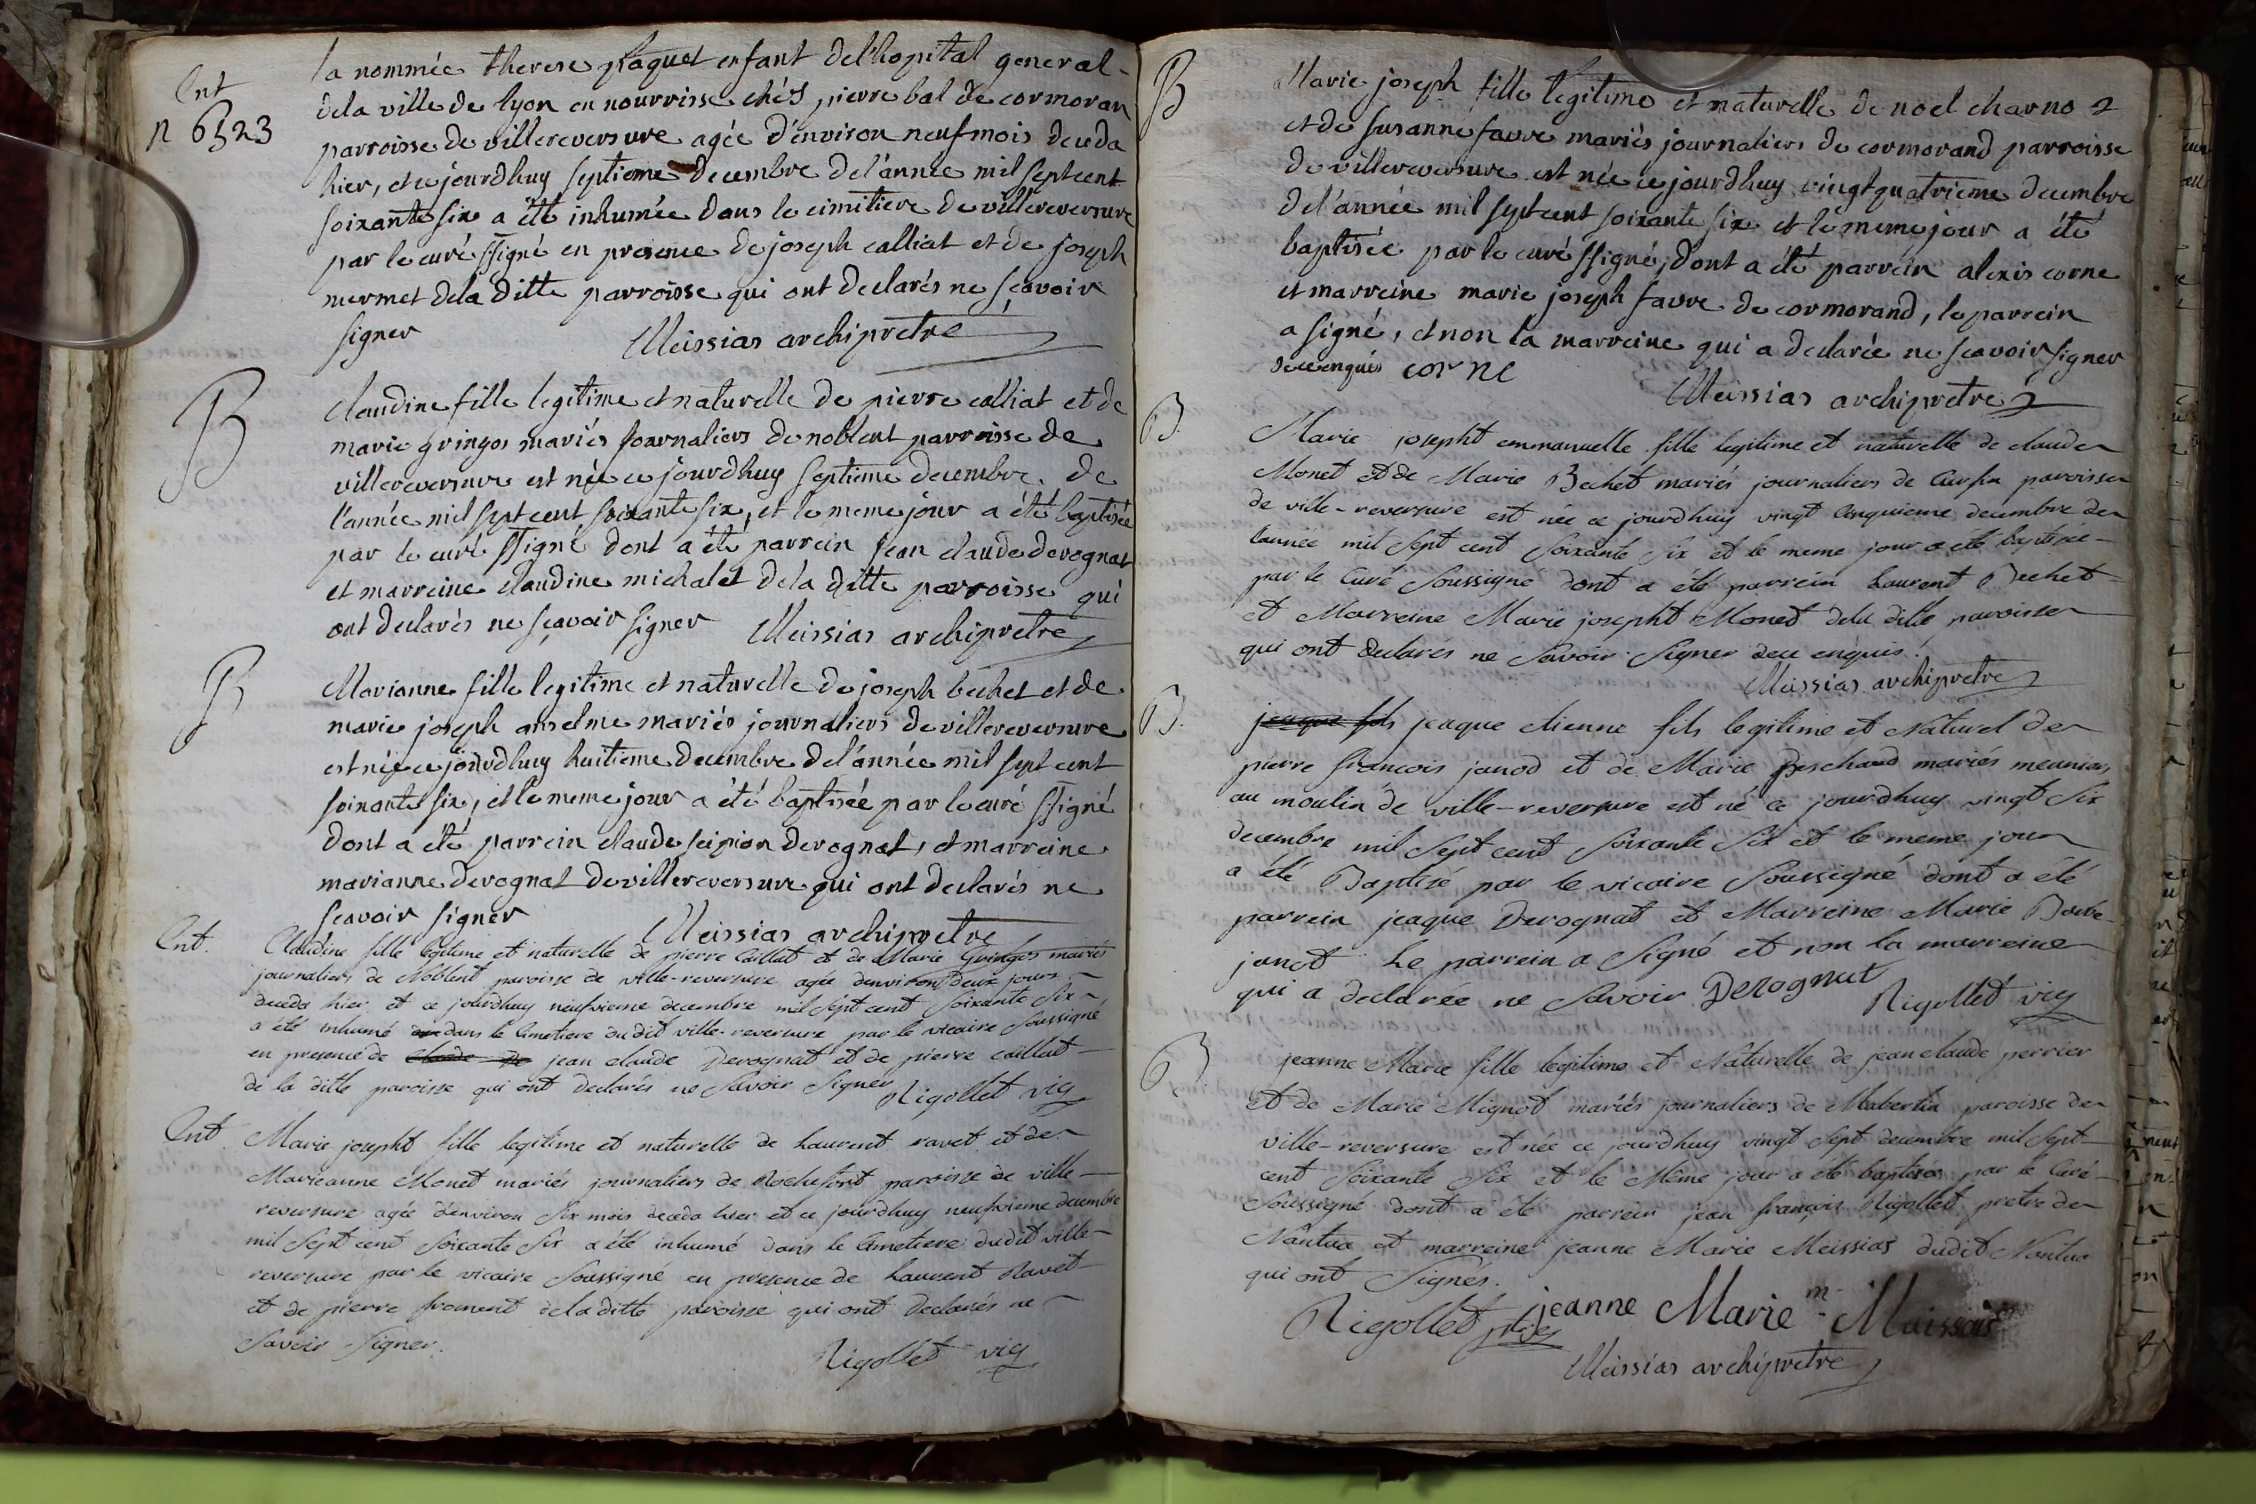 Ent
n 6523
la nommée therese plaquet enfant del'hopital general
dela ville de lyon en nourrisse chés pierre bal de cormoran
parroisse de villereversure agée d'environ neuf mois deceda
hier, et ce jourdhuy septieme decembre del'année mil sept cent
soixante six a été inhumée dans le cimitiere de villereversure
par le curé ssigné en presence de joseph calliat et de joseph
mermet dela ditte parroisse qui ont declarés ne sçavoir
signer Meissias archiprètre
B
claudine fille legitime et naturelle de pierre calliat et de
marie gringos mariés journaliers de noblent parroisse de
villereversure est née ce jourdhuy septieme decembre de
l'année mil sept cent soixante six, et le meme jour a été baptisée
par le curé ssigné dont a été parrein jean claude derognat
et marreine claudine michalet dela ditte parroisse qui
ont declarés ne sçavoir signer Meissias archiprètre
B
Marianne fille legitime et naturelle de joseph bechet et de
marie joseph anselme mariés journaliers de villereversure
est née ce jourdhuy huitieme decembre del'année mil sept cent
soixante six, et le meme jour a été baptisée par le curé ssigné
dont a été parrein claude scipion derognat, et marreine
marianne derognat de villereversure qui ont declarés ne
scavoir signer Meissias archiprètre
Ent.
Claudine fille legitime et naturelle de pierre Calliat et de Marie Gringos mariés
journaliers de Noblent paroisse de ville-reversure agée denviron deux jours
deceda hier et ce jourdhuy neufvieme decembre mil sept cent soixante six
a été inhumé dans le Cimetiere dudit ville-reversure par le vicaire soussigné
en presence de claude de jean claude Derognat et de pierre caillat
de la ditte paroisse qui ont declarés ne savoir signer Rigollet vic
Ent
Marie josepht fille legitime et naturelle de Laurent ravet et de
Marieanne Monet mariés journaliers de Rochefort paroisse de ville-
reversure agée d'environ six mois deceda hier et ce jourdhuy neufvieme decembre
mil sept cent soixante six a été inhumé dans le Cimetiere dudit ville-
reversure par le vicaire soussigné en presence de Laurent Ravet
et de pierre froment dela ditte paroisse qui ont declarés ne
savoir signer.
Rigollet vic
B
Marie joseph fille legitime et naturelle de noel charno
et de susanne favre mariés journaliers de cormorand parroisse
de villereversure est née ce jourdhuy vingt quatrieme decembre
del'année mil sept cent soixante six et le meme jour a été
baptisée par le curé ssigné, dont a été parrein alexis corne
et marreine marie joseph favre de cormorand, le parrein
a signé, et non la marreine qui a declarée ne sçavoir signer
de ce enquis corne
Meissias archiprètre
B
Marie josepht emmanuelle fille legitime et naturelle de claude
Monet et de Marie Bechet mariés journaliers de Curfin paroisse
de ville-reversure est née ce jourdhuy vingt cinquieme decembre de
l'année mil sept cent soixante six et le meme jour a été baptisée
par le Curé soussigné dont a été parrein Laurent Bechet
et Marreine Marie josepht Monet dela ditte paroisse
qui ont declarés ne savoir signer de ce enquis.
Meissias archiprètre
B
jeaque fils jeaque etienne fils legitime et Naturel de
pierre francois janod et de Marie peschaud mariés meuniers
au moulin de ville-reversure est né ce jourdhuy vingt six
decembre mil sept cent soixante six et le meme jour
a été Baptisé par le vicaire soussigné dont a été
parrein jeaque Derognat et Marreine Marie
janot Le parrein a signé et non la marreine
qui a declarée ne savoir Derognat
Rigollet vic
B
jeanne Marie fille legitime et Naturelle de jean claude perrier
et de Marie Mignot mariés journaliers de paroisse de
ville-reversure est née ce jourdhuy vingt sept decembre mil sept
cent soixante six et le même jour a été baptisée par le Curé
soussigné dont a été parrein jean françois Rigollet pretre de
Nantua et marreine jeanne Marie Meissias dudit Nantua
qui ont signés.
Rigollet jeanne Marie Maissias
Meissias archiprètre